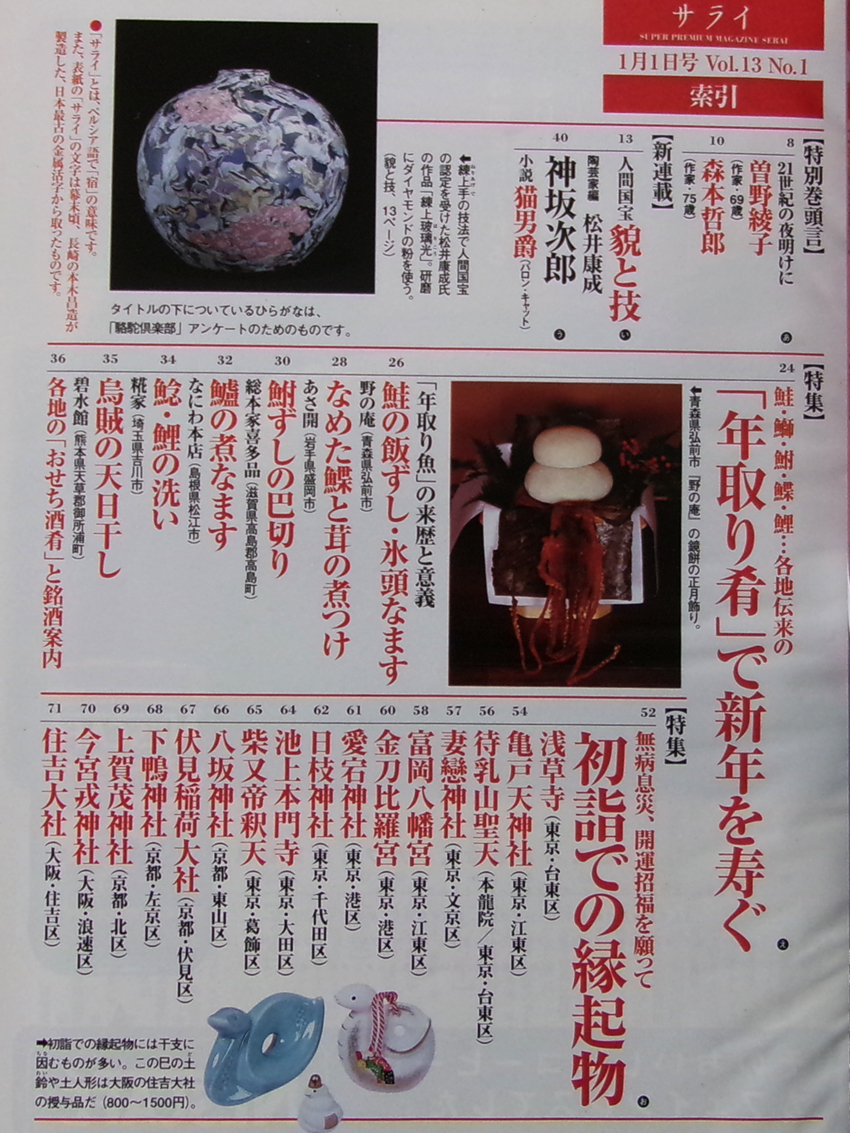 サライ
SUPER PREMIUM MAGAZINE SERAI
1月1日号 Vol.13 No.1
索引
【特別巻頭言】
8
21世紀の夜明けに
曽野綾子
(作家・69歳)
10
森本哲郎
(作家・75歳)
あ
【新連載】
13
人間国宝 貌と技
陶芸家編 松井康成
い
40
神坂次郎
小説 猫男爵(バロン・キャット)
う
⬅練上手の技法で人間国宝
の認定を受けた松井康成氏
の作品「練上玻璃光」。研磨
にダイヤモンドの粉を使う。
(貌と技、13ページ)
●「サライ」とは、ペルシア語で「宿」の意味です。
また、表紙の「サライ」の文字は幕末頃、長崎の本木昌造が
製造した、日本最古の金属活字から取ったものです。
タイトルの下についているひらがなは、
「駱駝倶楽部」アンケートのためのものです。
【特集】
24
鮭・鰤・鮒・鰈・鯉…各地伝来の
「年取り肴」で新年を寿ぐ
え
⬅青森県弘前市「野の庵」の鏡餅の正月飾り。
「年取り魚」の来歴と意義
26
鮭の飯ずし・氷頭なます
野の庵(青森県弘前市)
28
なめた鰈と茸の煮つけ
あさ開(岩手県盛岡市)
30
鮒ずしの巴切り
総本家喜多品(滋賀県高島郡高島町)
32
鱸の煮なます
なにわ本店(島根県松江市)
34
鯰・鯉の洗い
糀家(埼玉県吉川市)
35
烏賊の天日干し
碧水館(熊本県天草郡御所浦町)
36
各地の「おせち酒肴」と銘酒案内
【特集】
52
無病息災、開運招福を願って
初詣での縁起物
お
浅草寺(東京・台東区)
54
亀戸天神社(東京・江東区)
56
待乳山聖天(本龍院/東京・台東区)
57
妻戀神社(東京・文京区)
58
富岡八幡宮(東京・江東区)
60
金刀比羅宮(東京・港区)
61
愛宕神社(東京・港区)
62
日枝神社(東京・千代田区)
64
池上本門寺(東京・大田区)
65
柴又帝釈天(東京・葛飾区)
66
八坂神社(京都・東山区)
67
伏見稲荷大社(京都・伏見区)
68
下鴨神社(京都・左京区)
69
上賀茂神社(京都・北区)
70
今宮戎神社(大阪・浪速区)
71
住吉大社(大阪・住吉区)
➡初詣での縁起物には干支に
因むものが多い。この巳の土
鈴や土人形は大阪の住吉大社
の授与品だ(800〜1500円)。